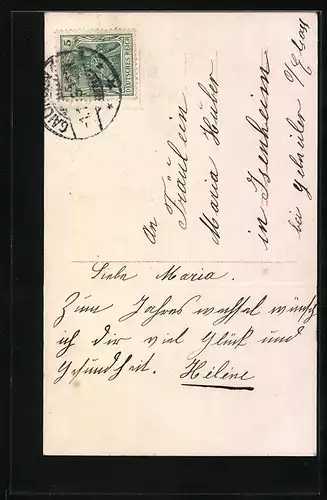 5
DEUTSCHES REICH
An
Fräulein
Maria Huber
in Isenheim
bei Gebwiler O/Elsass
Liebe Maria.
Zum Jahres wechsel wünsch
ich dir viel Glück und
Gesundheit. Hélène